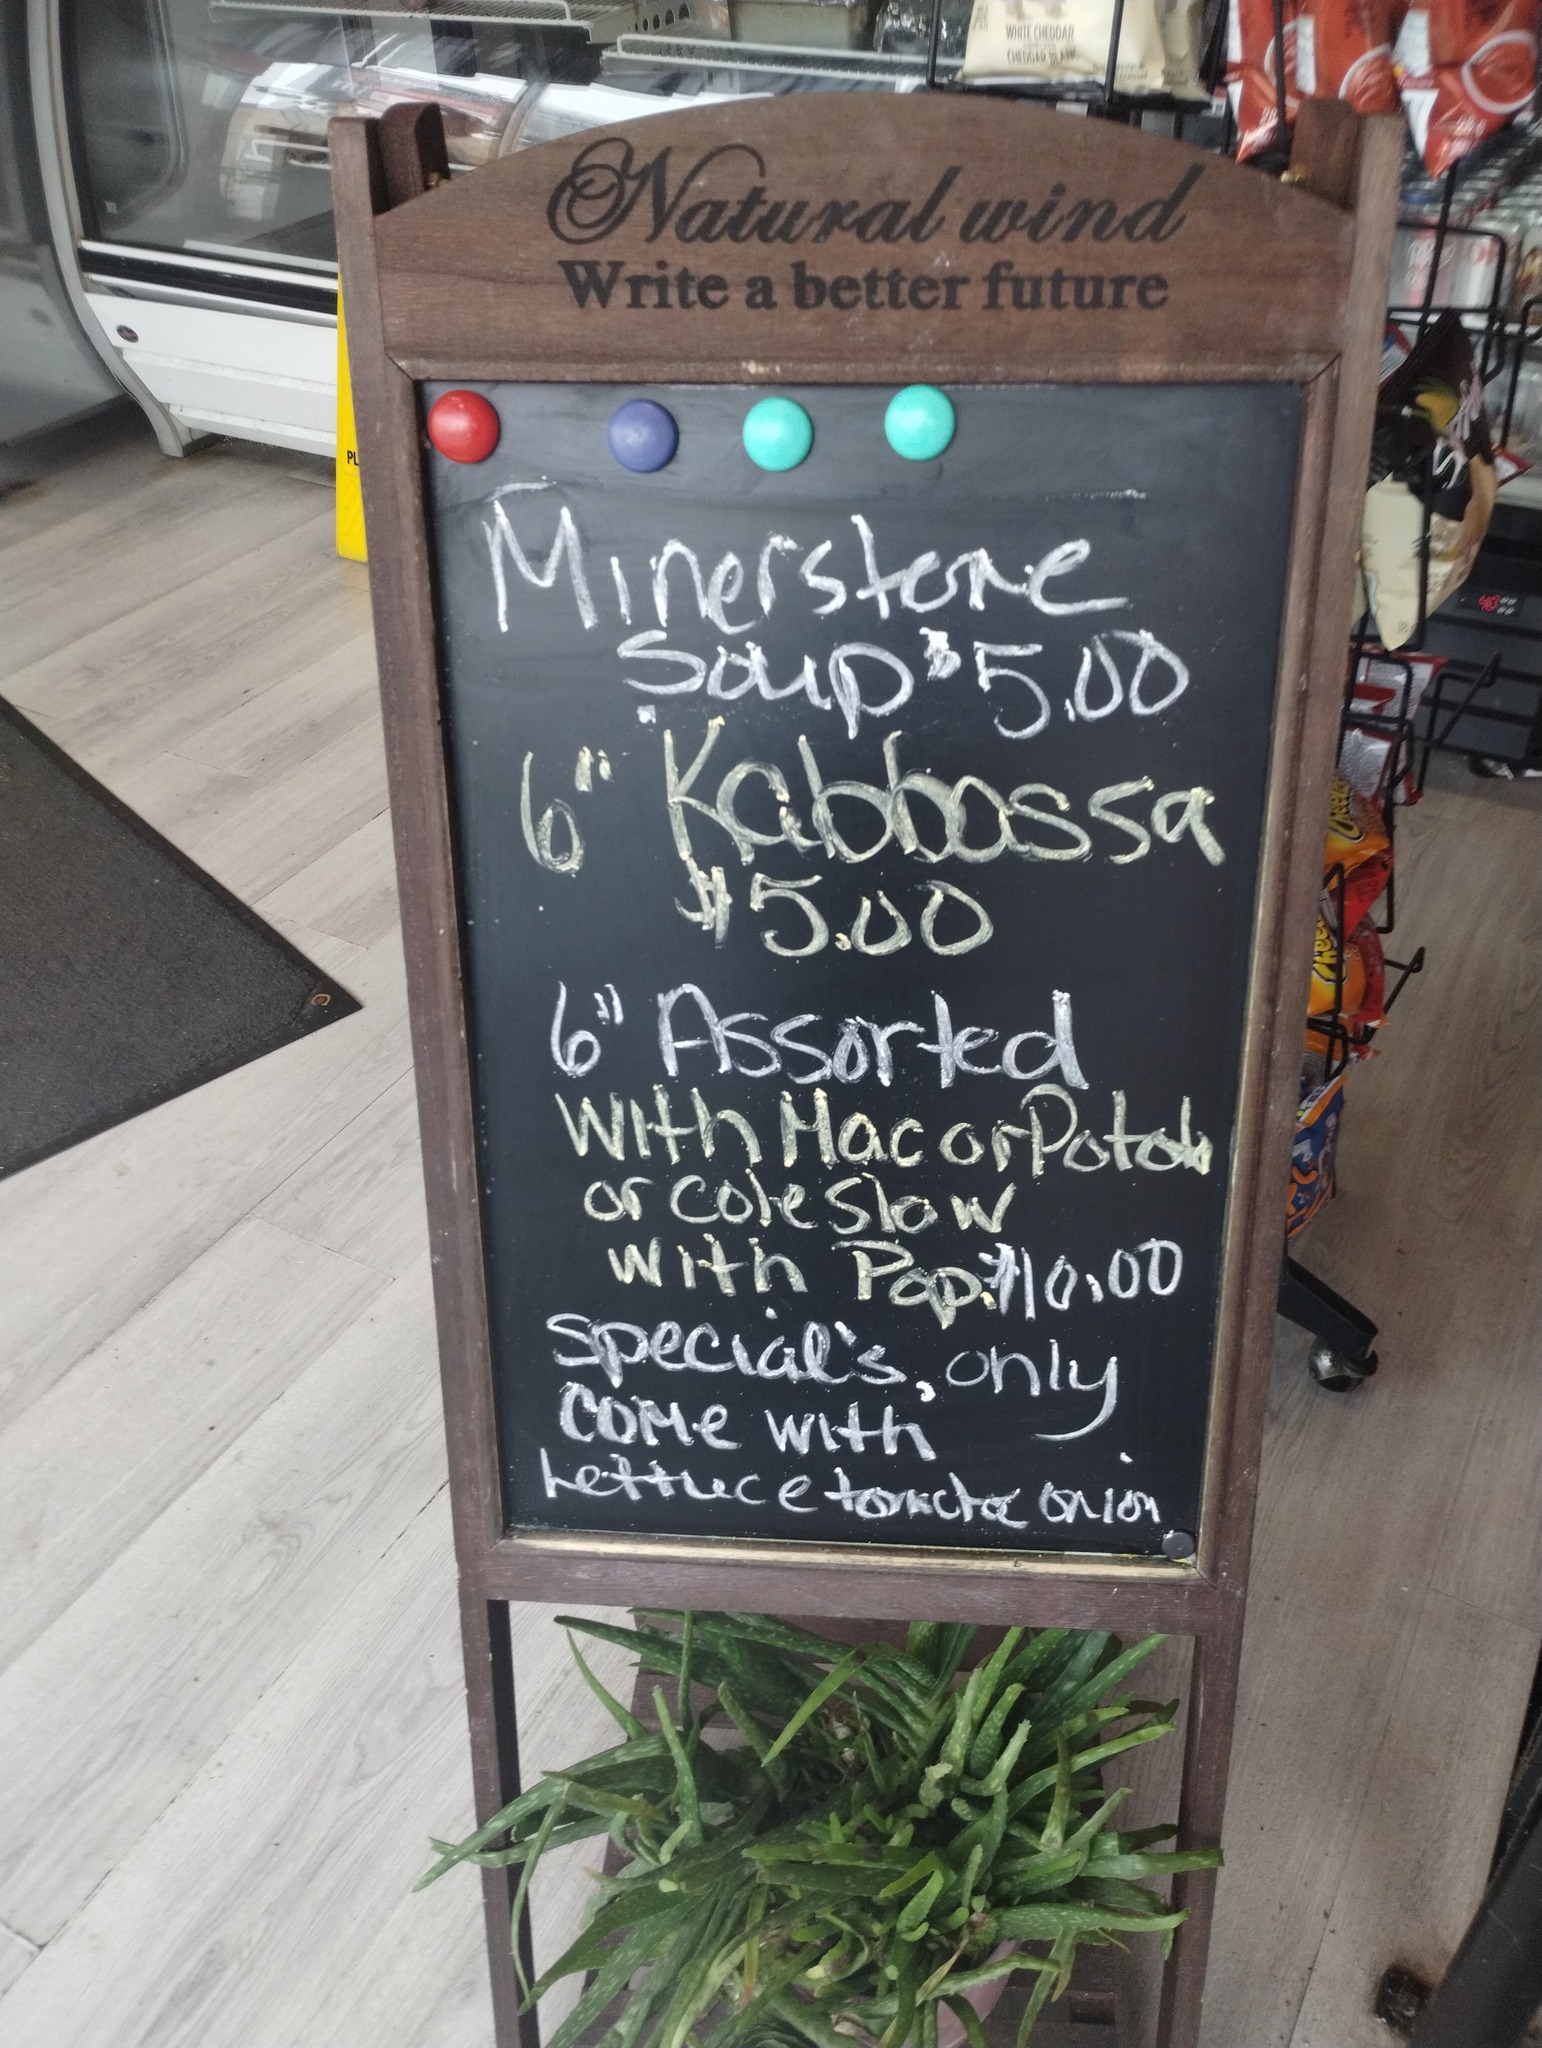 WHITE CHEDDAR
CHEDDAR BLANC
Natural wind
Write a better future
PL
Minerstone
Soup $5.00
6" Kabbassa
$5.00
6" Assorted
with Mac or Potato
or coleslaw
with Pop. $10.00
special's, only
come with
Lettuce tomatoe onion